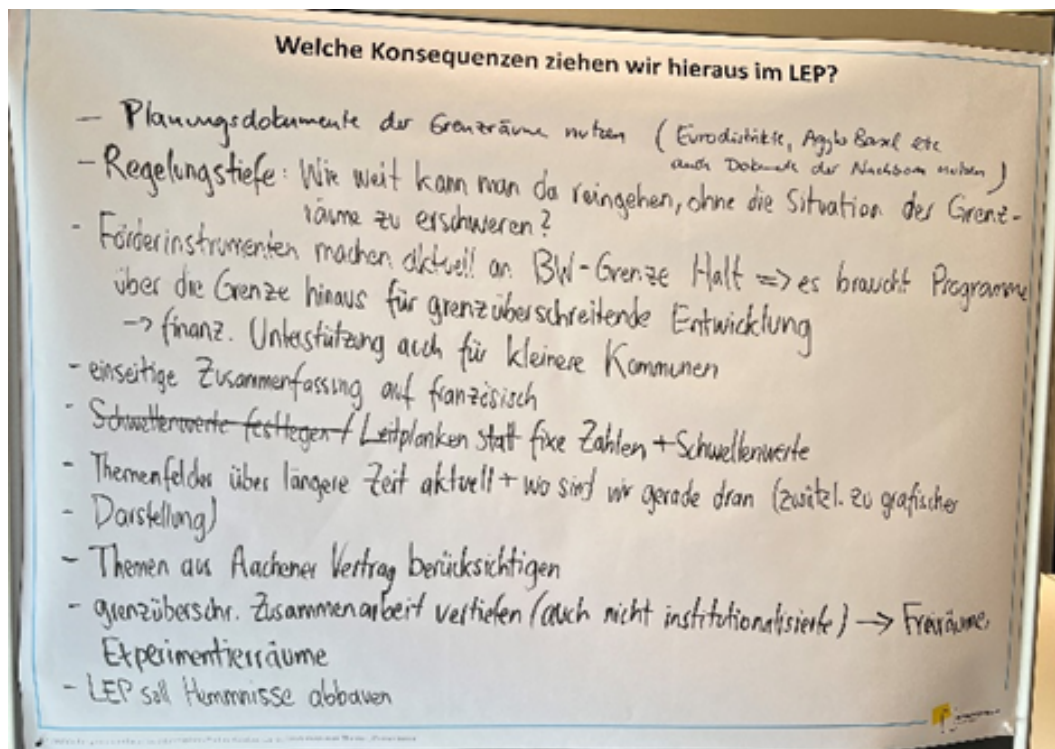 Welche Konsequenzen ziehen wir hieraus im LEP?
- Planungsdokumente der Grenzräume nutzen (Eurodistrikte, Agglo Basel etc
auch Dokumente der Nachbarn nutzen)
- Regelungstiefe: Wie weit kann man da reingehen, ohne die Situation der Grenz-
räume zu erschweren?
- Förderinstrumenten machen aktuell an BW-Grenze Halt => es braucht Programme
über die Grenze hinaus für grenzüberschreitende Entwicklung
-> finanz. Unterstützung auch für kleinere Kommunen
- einseitige Zusammenfassung auf französisch
- Schwellenwerte festlegen / Leitplanken statt fixe Zahlen + Schwellenwerte
- Themenfelder über längere Zeit aktuell + wo sind wir gerade dran (zusätzl. zu grafischer
- Darstellung)
- Themen aus Aachener Vertrag berücksichtigen
- grenzüberschr. Zusammenarbeit vertiefen (auch nicht institutionalisierte) -> Freiräume,
Experimentierräume
- LEP soll Hemmnisse abbauen